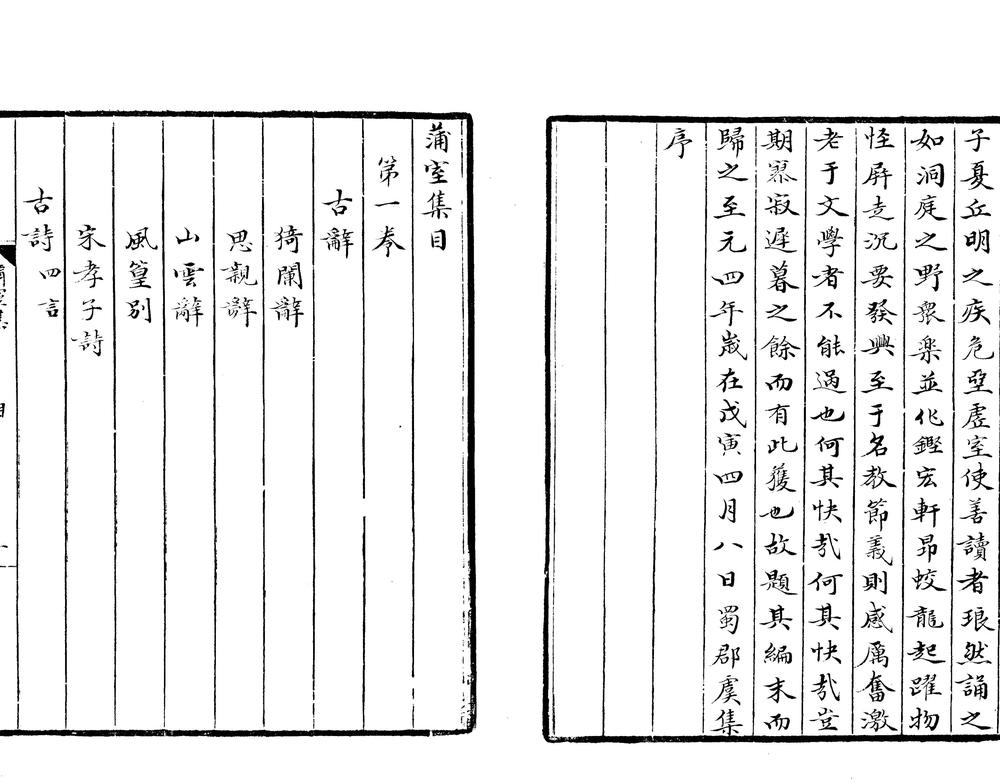 子夏丘明之疾危坐虛室使善讀者琅然誦之
如洞庭之野衆樂並作鏗宏軒昂蛟龍起躍物
怪屏走沉要發興至于名教節義則感厲奮激
老于文學者不能過也何其快哉何其快哉豈
期寂寂遲暮之餘而有此獲也故題其編末而
歸之至元四年歲在戊寅四月八日蜀郡虞集
序
蒲室集目
第一卷
古辭
猗蘭辭
思親辭
山雲辭
風篁別
宋孝子詩
古詩四言